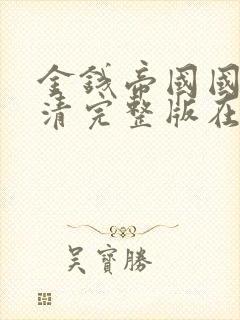 金錢帝國國
清完整版在
吴寶勝